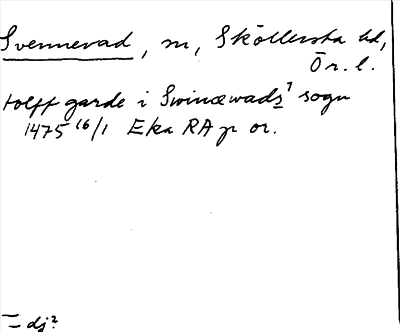 Svennevad, sn, Sköllersta hd,
Ör. l.
tolff garde i Swinæwads? sogn
1475 16/1 Eka RA p or.
= dj?